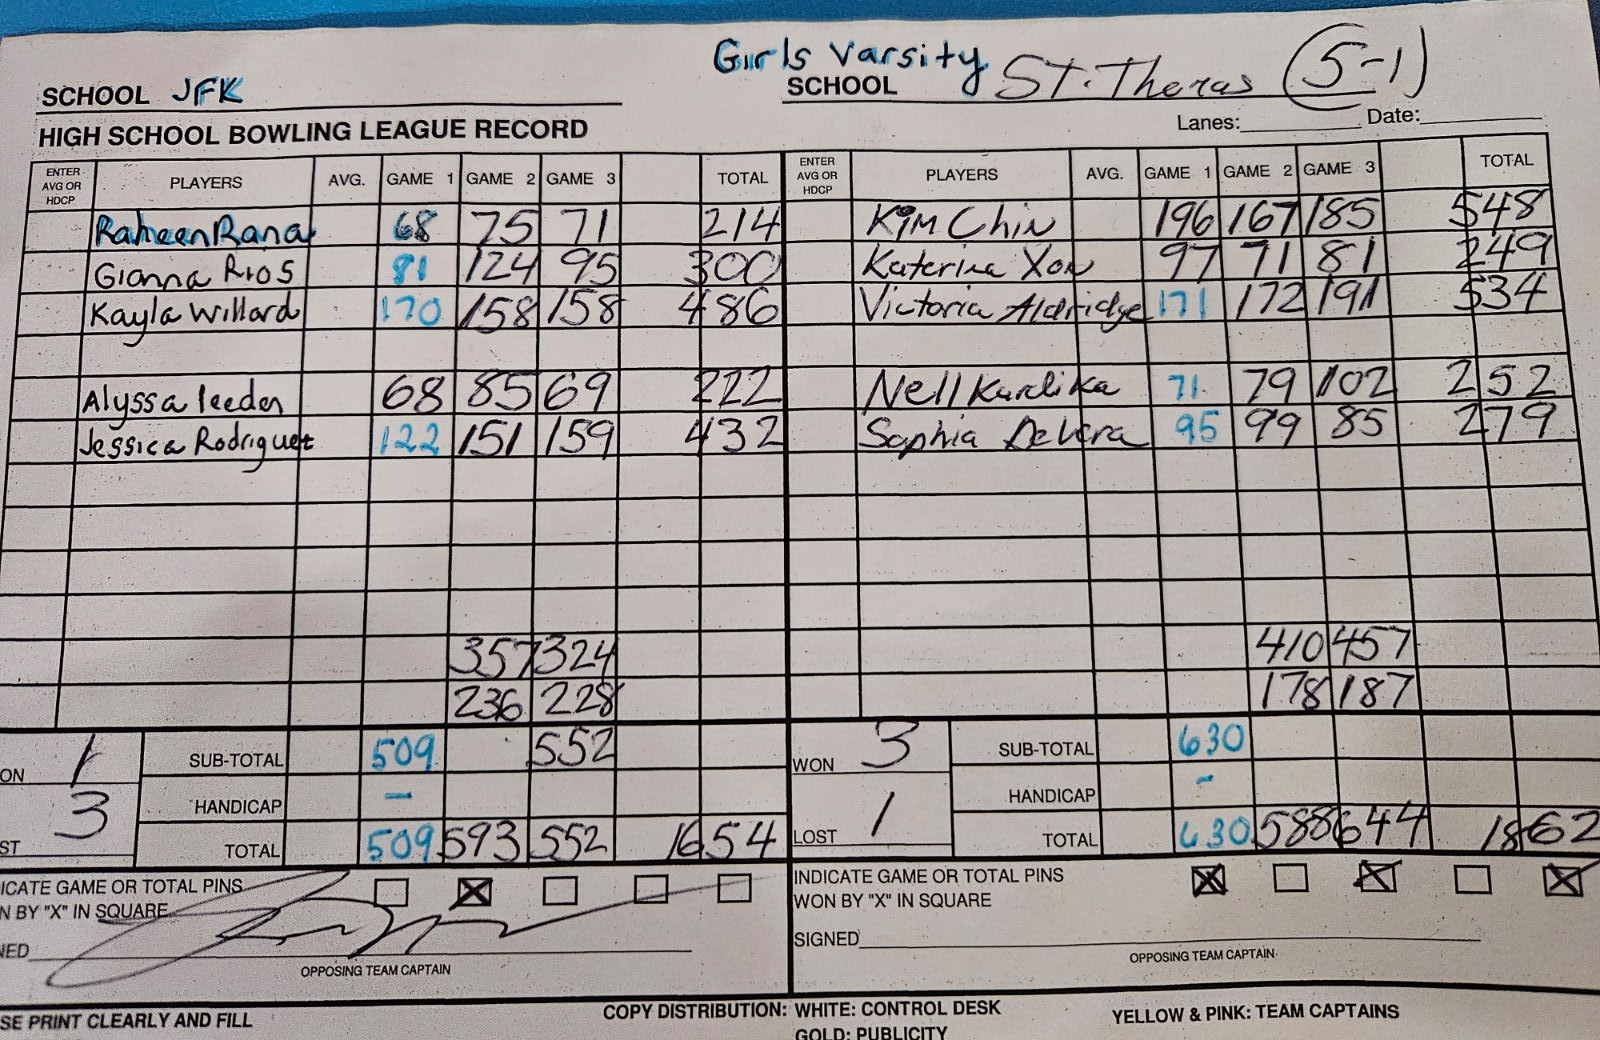 Girls Varsity
SCHOOL JFK
SCHOOL St. Theras (5-1)
HIGH SCHOOL BOWLING LEAGUE RECORD
Lanes: Date:
ENTER AVG OR HDCP PLAYERS AVG. GAME 1 GAME 2 GAME 3 TOTAL
Raheen Rana 68 75 71 214
Gianna Rios 81 124 95 300
Kayla Willard 170 158 158 486
Alyssa leeder 68 85 69 222
Jessica Rodriguet 122 151 159 432
357 324
236 228
ON 1 SUB-TOTAL 509 552
HANDICAP -
ST 3 TOTAL 509 593 552 1654
ICATE GAME OR TOTAL PINS
N BY "X" IN SQUARE
NED
OPPOSING TEAM CAPTAIN
ENTER AVG OR HDCP PLAYERS AVG. GAME 1 GAME 2 GAME 3 TOTAL
Kim Chin 196 167 185 548
Katerina Xon 97 71 81 249
Victoria Aldridge 171 172 191 534
Nell Kurdika 71 79 102 252
Sophia DeVera 95 99 85 279
410 457
178 187
WON 3 SUB-TOTAL 630
HANDICAP -
LOST 1 TOTAL 630 588 644 1862
INDICATE GAME OR TOTAL PINS
WON BY "X" IN SQUARE
SIGNED
OPPOSING TEAM CAPTAIN
SE PRINT CLEARLY AND FILL
COPY DISTRIBUTION: WHITE: CONTROL DESK YELLOW & PINK: TEAM CAPTAINS
GOLD: PUBLICITY